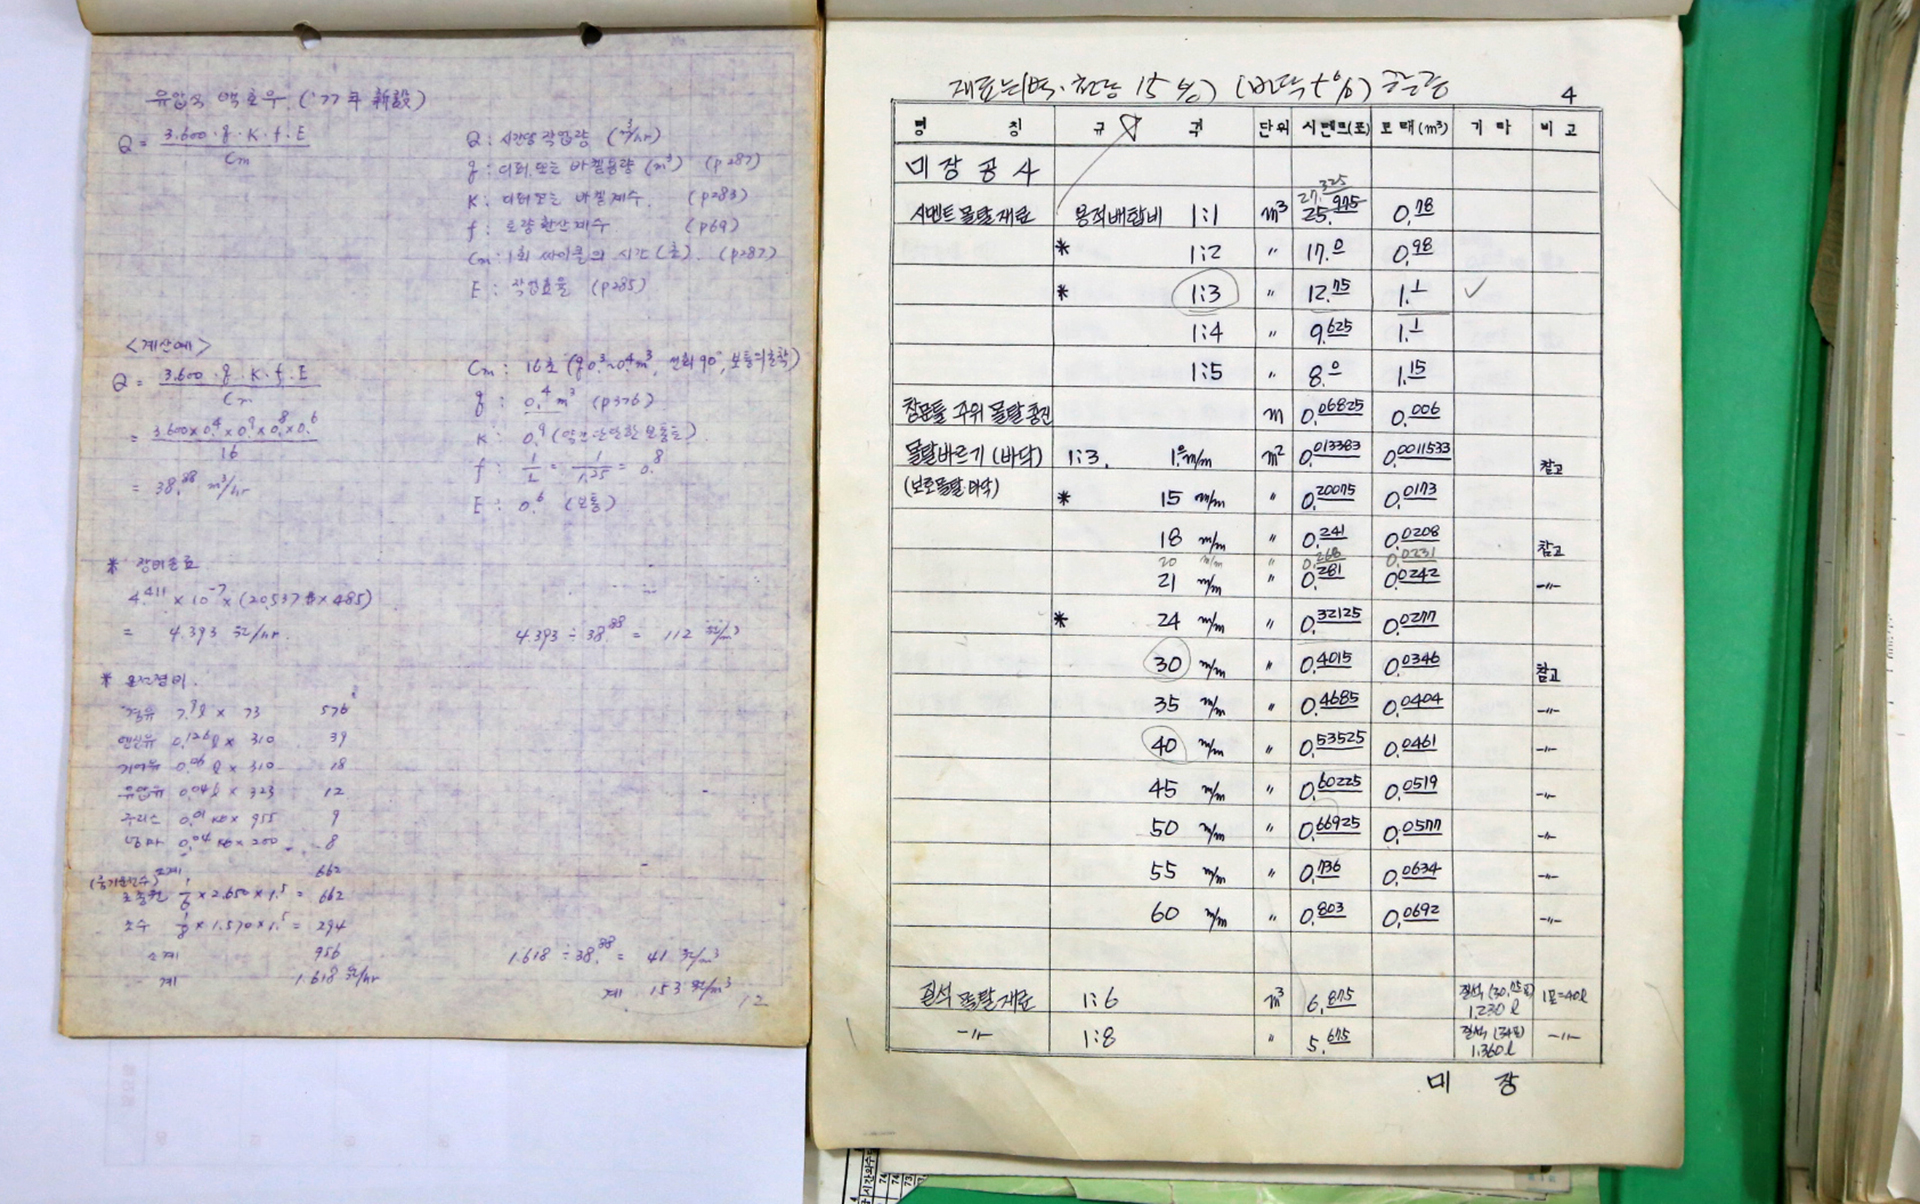 유압식 백호우 ('77年 新設)
Q = 3.600·q·K·f·E / Cm
Q : 시간당 작업량 (m³/hr)
q : 디퍼 또는 바켙용량 (m³) (p287)
K : 디퍼 또는 바켙계수. (p283)
f : 토량환산계수 (p69)
Cm : 1회 싸이클의 시간 (초). (p287)
E : 작업효율 (p285)
<계산예>
Q = 3.600·q·K·f·E / Cm
= 3.600×0.4×0.9×0.8×0.6 / 16
= 38.88 m³/hr
Cm : 16초 (q 0.3~0.4m³, 선회 90°, 보통의 굴착)
q : 0.4 m³ (p376)
K : 0.9
f : 1/L = 1/1.25 = 0.8
E : 0.6 (보통)
* 장비손료
4.411 × 10⁻⁷ × (20.537 × 485)
= 4.393 원/hr.
4.393 ÷ 38.88 = 112 원/m³
* 운전경비.
경유 7.9ℓ × 73 576
엔진유 0.126ℓ × 310 39
기어유 0.06ℓ × 310 18
유압유 0.04ℓ × 323 12
구리스 0.01 KG × 955 9
넝마 0.04 KG × 200 8
소계 662
조종원 1/6 × 2.650 × 1.5 = 662
조수 1/8 × 1.570 × 1.5 = 294
소계 956
계 1.618 원/hr
1.618 ÷ 38.88 = 41 원/m³
계 153 원/m³
12
재료는 (벽·천장 15%) (바닥 5%) 할증
4
명 칭 규 격 단위 시멘트(포) 모래(m³) 기타 비고
미장공사
시멘트 몰탈재료 용적배합비 1:1 m³ 27.325 25.975 0.78
* 1:2 〃 17.0 0.98
* 1:3 〃 12.75 1.1 ✓
1:4 〃 9.625 1.1
1:5 〃 8.0 1.15
창문틀 주위 몰탈 충진 m 0.06825 0.006
몰탈바르기 (바닥) 1:3. 1.0 m/m m² 0.013383 0.0011533 참고
(보호몰탈·바닥) * 15 m/m 〃 0.20075 0.0173
18 m/m 〃 0.241 0.0208 참고
20 m/m 〃 0.268 0.0231
21 m/m 〃 0.281 0.0242 -〃-
* 24 m/m 〃 0.32125 0.0277
30 m/m 〃 0.4015 0.0346 참고
35 m/m 〃 0.4685 0.0404 -〃-
40 m/m 〃 0.53525 0.0461 -〃-
45 m/m 〃 0.60225 0.0519 -〃-
50 m/m 〃 0.66925 0.0577 -〃-
55 m/m 〃 0.736 0.0634 -〃-
60 m/m 〃 0.803 0.0692 -〃-
질석 몰탈재료 1:6 m³ 6.875 질석 (30.75포) 1.230ℓ 1포=40ℓ
-〃- 1:8 〃 5.675 질석 (34포) 1.360ℓ -〃-
미 장